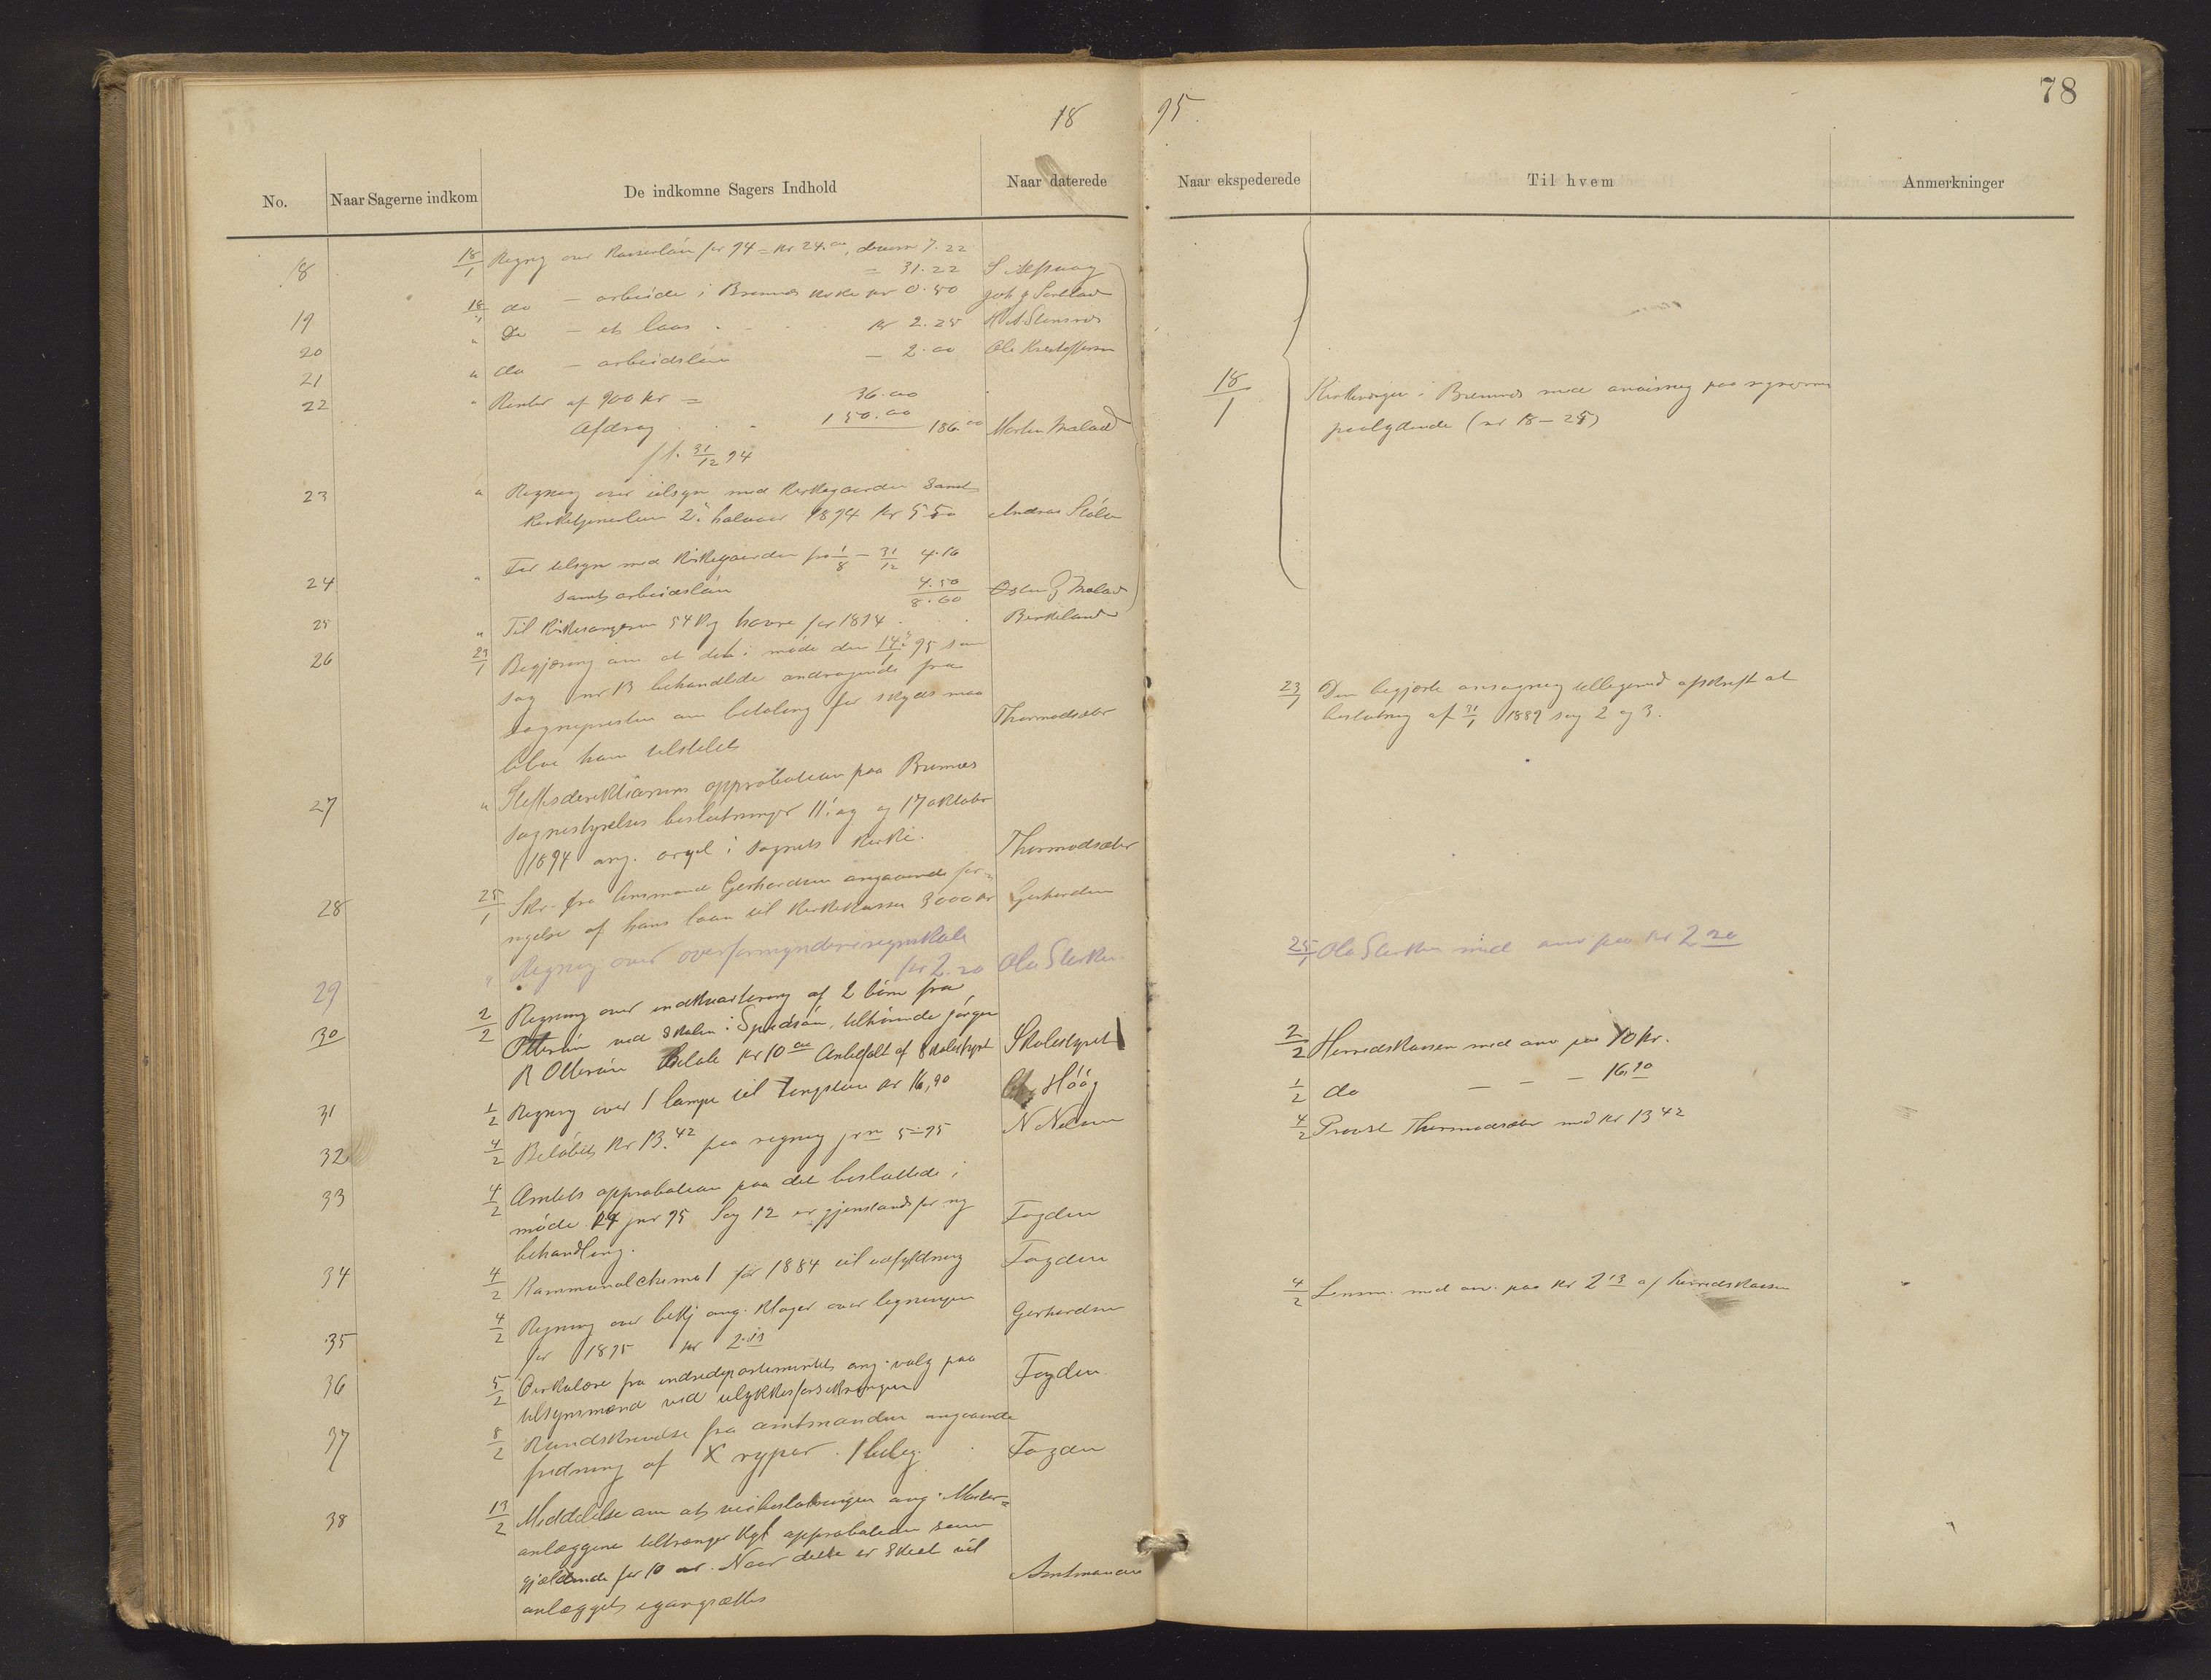 78
18 95.
No. Naar Sagerne indkom De indkomne Sagers Indhold Naar daterede
18 18/1 Regng over for 94 = kr 24.00, 7.22
= 31.22 S
19 18/" do — arbeide i Bremnes kirke kr 0.50
20 " Do — et laas kr 2.25
21 " do — arbeidslön — 2.00 Ole Kristoffersen
22 " Renter af 900 kr = 36.00
Afdrag 150.00 186.00 Morten
31/12 94
23 " Regning over tilsyn med kirkegaarden samt
kirketjenerløn 2. halvaar 1894 kr 5.50 Andreas
24 " For tilsyn med kirkegaarden fra 1/8 – 31/12 4.10
samt arbeidslön 4.50
8.60
25 " Til kirkesangeren 54 kg havre for 1894 Birkeland
26 23/1 Begjæring om at det i møde den 14/1 95 som
sag nr 13 behandlede andragende fra
sognepresten om betaling for skyds maa
blive ham tilstelet Thormodsæter
27 " Stiftsdirektionens approbation paa Bremnes
sognestyrelses beslutninger 11. aug og 17 oktober
1894 ang. orgel i sognets kirke. Thormodsæter
28 25/1 Skr. fra lensmand Gerhardsen angaaende for-
nyelse af hans laan til kirkekassen 3000 kr Gerhardsen
29 " Regning over overformynderiregnskab
kr 2.20 Ola
30 2/2 Regning over indkvartering af 2 börn fra
ved skolen i tilhörende Jörgen
R kr 10 00 Anbefalt af Skolestyret Skolestyret
31 1/2 Regning over 1 lampe til kr 16,90
32 4/2 Beløbet kr 13.42 paa regning jrn 5-95 N
33 4/2 Amtets approbation paa det besluttede i
møde 14 jnr 95 Sag 12 er gjenstand for ny
behandling. Fogden
34 4/2 Kommunalskema 1 for 1884 til udfyldning Fogden
35 4/2 Regning over bekj ang. klager over ligningen
for 1895 kr 2.13 Gerhardsen
36 5/2 Cirkulære fra indredepartementet ang. valg paa
tilsynsmænd ved ulykkesforsikringen Fogden
37 8/2 Rundskrivelse fra amtmanden angaaende
fredning af ryper. 1 bilag. Fogden
38 13/2 Meddelelse om at ang.
anlæggene tiltrænger kgl approbation som
gjældende for 10 aar. Naar dette er skeet vil
anlægget igangsættes Amtmanden
Naar ekspederede Til hvem Anmerkninger
18/1 Kirkeverger i Bremnes med anvisning paa
paalydende (nr 18 – 25)
23/1 Den begjærte tilligemed afskrift at
beslutning af 31/1 1889 sag 2 og 3.
25/1 Ola med anv paa kr 2 20
2/2 Herredskassen med anv paa 10 kr.
1/2 do — — — 16.90
4/2 Provst Thormodsæter med kr 13 42
4/2 Lensm. med anv. paa kr 2 13 af herredskassen